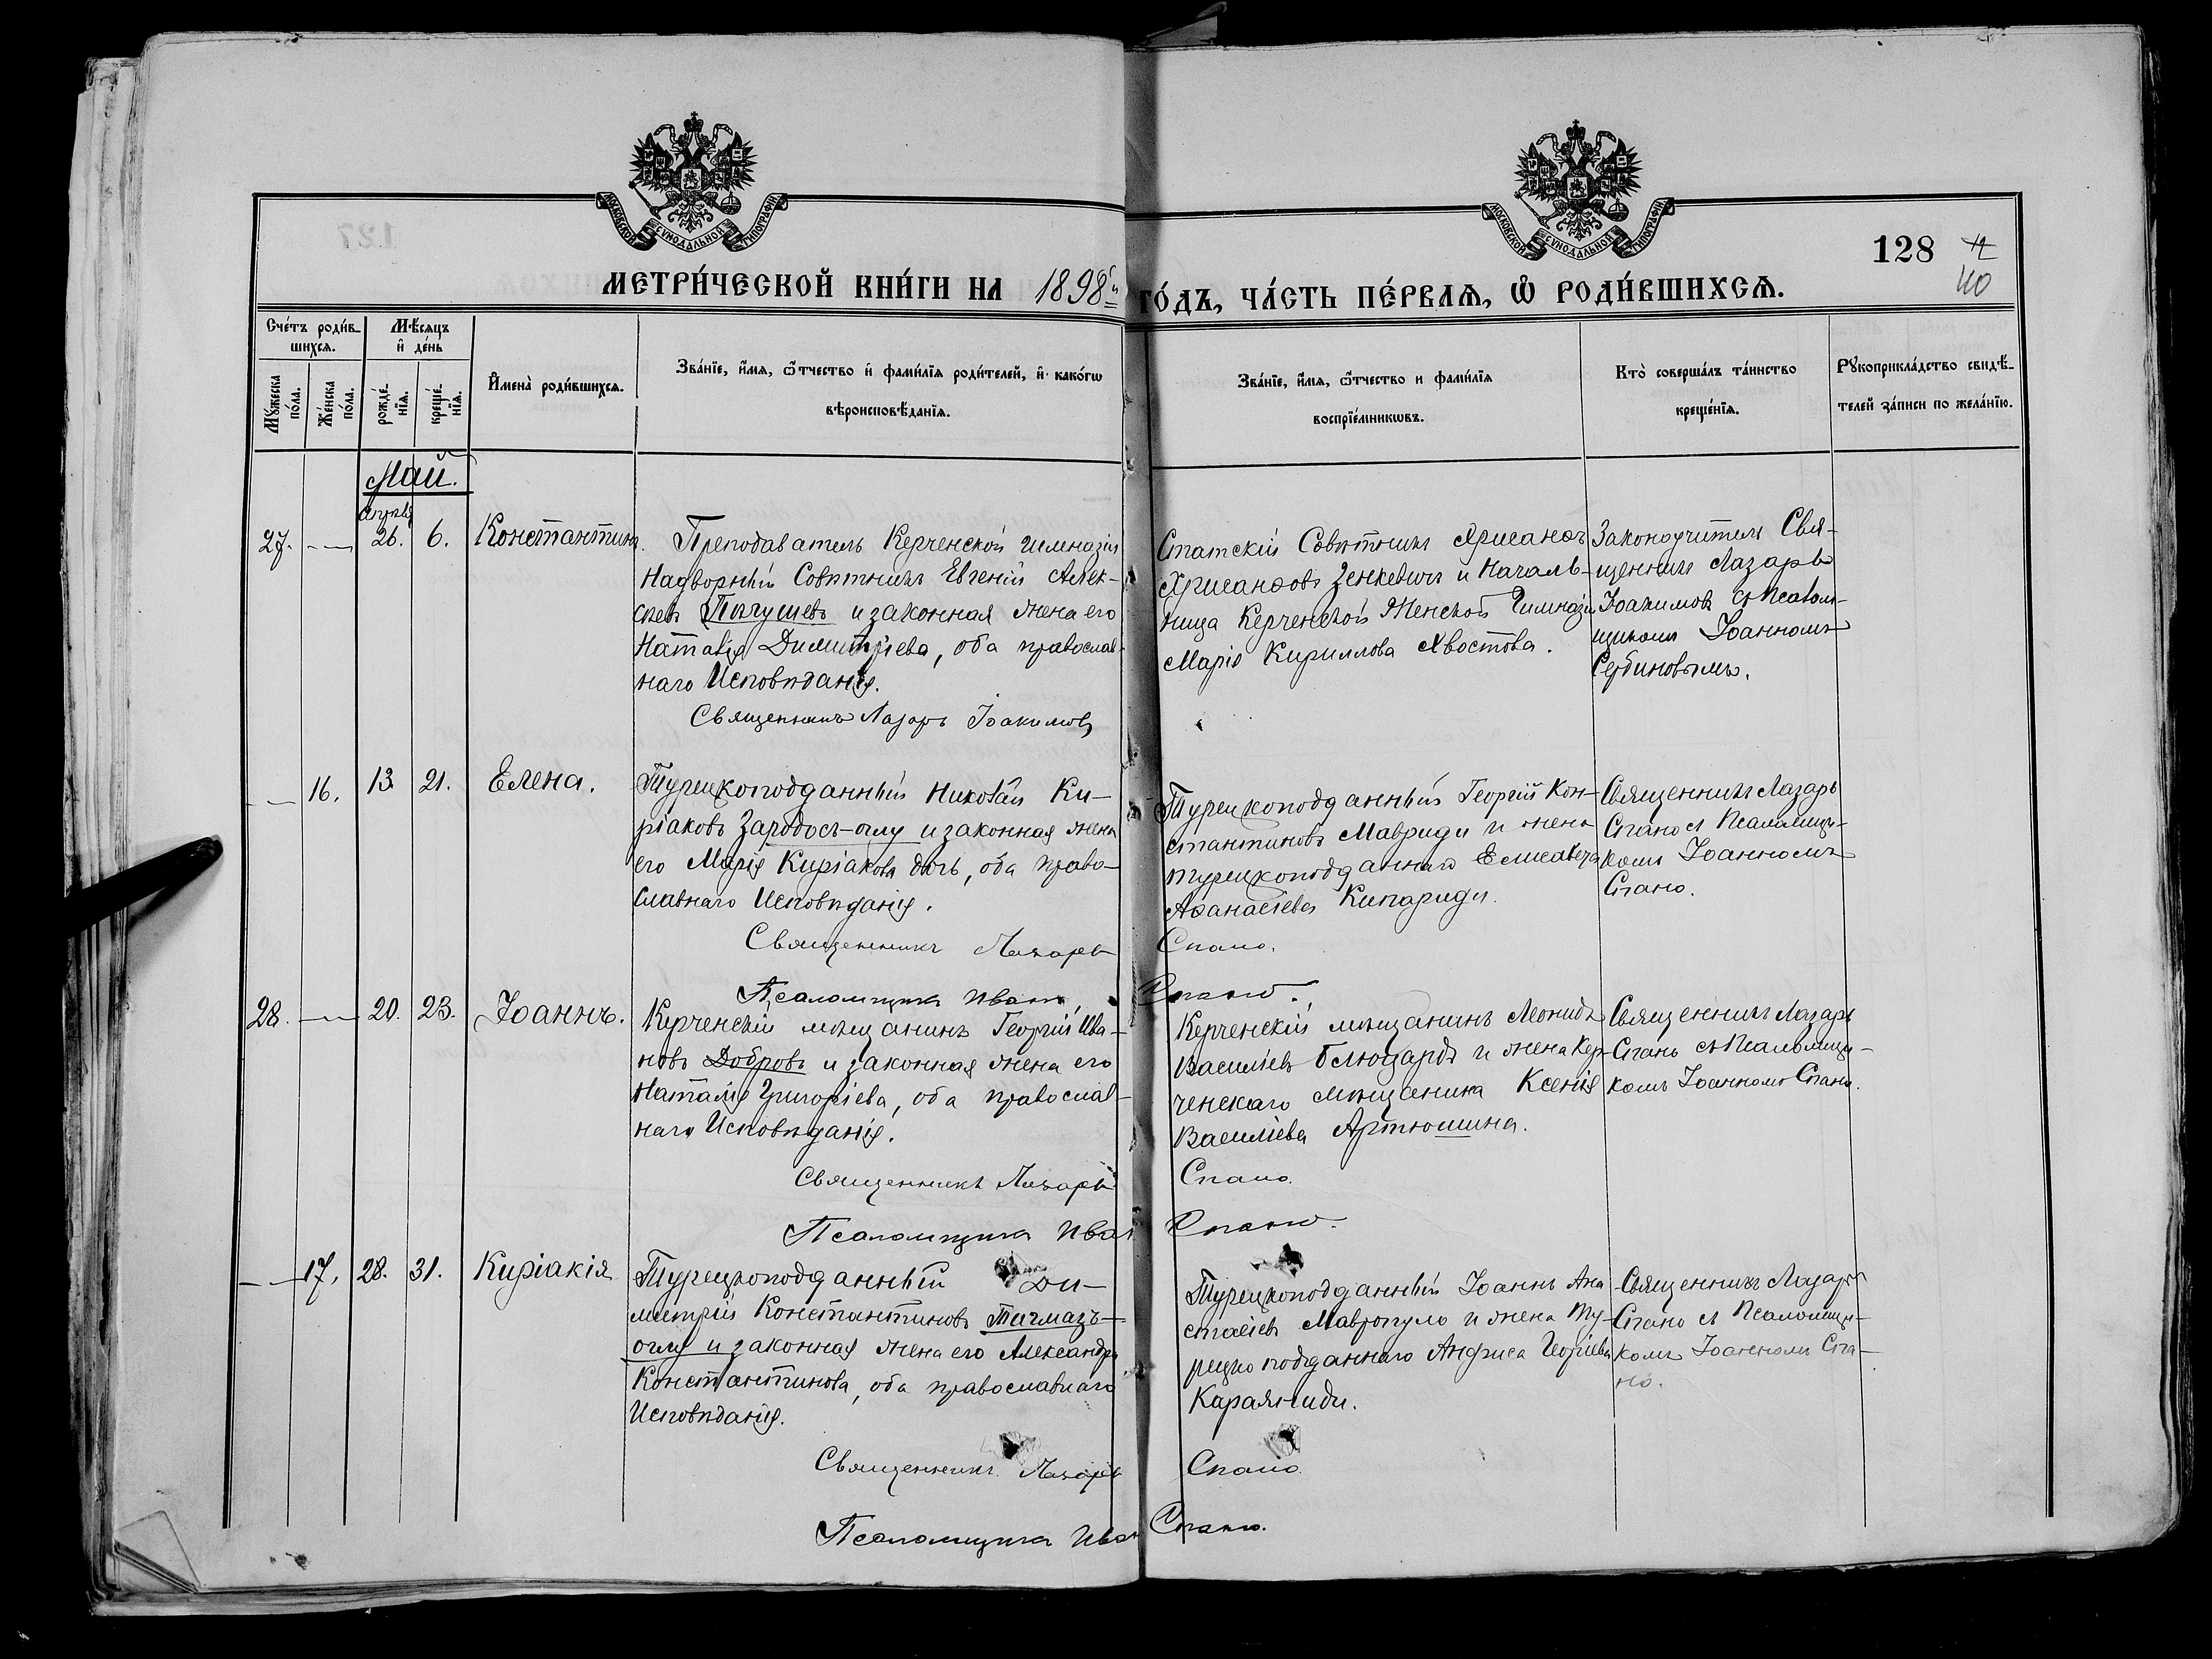 МОСКОВСКОЙ СѴНОДАЛЬНОЙ ТИПОГРАФІИ
МОСКОВСКОЙ СѴНОДАЛЬНОЙ ТИПОГРАФІИ
128
12
40
МЕТРИ́ЧЕСКОЙ КНИ́ГИ НА 1898й ГО́ДЪ, ЧА́СТЬ ПЕ́РВАѦ, Ѡ РОДИ́ВШИХСѦ.
Сче́тъ роди́в-
шихсѧ.
Мѣ́сѧцъ
и̂ де́нь
Мꙋ́жеска
по́ла.
Же́нска
по́ла.
рожде́-
нїѧ.
креще́-
нїѧ.
И҆мена̀ роди́вшихсѧ.
Зва́нїе, и҆́мѧ, ѻ҆́тчество и҆ фами́лїѧ роди́телей, и҆ како́гѡ
вѣроисповѣ́данїѧ.
Зва́нїе, и҆́мѧ, ѻ҆́тчество и фами́лїѧ
воспрїе́мникѡвъ.
Кто̀ соверша́лъ та́инство
креще́нїѧ.
Рꙋкоприкла́дство свидѣ́-
телей за́писи по жела́нїю.
Май.
Апрѣля
27. 26. 6. Константинъ.
Преподаватель Керченской гимназіи
Надворный Совѣтникъ Евгеній Алек-
сѣевъ и законная жена его
Наталія Димитріева, оба православ-
наго Исповѣданія.
Священникъ Лазарь Іоакимовъ
Статскій Совѣтникъ Хрисанѳъ
Хрисанѳовъ Зенкевичъ и Началь-
ница Керченской Женской Гимназіи
Марія Кириллова Хвостова.
Законоучитель Свя-
щенникъ Лазарь
Іоакимовъ съ Псалом-
щикомъ Іоанномъ
Сербиновымъ.
16. 13. 21. Елена.
Турецкоподданный Николай Ки-
ріаковъ и законная жена
его Марія Киріакова дочь, оба право-
славнаго Исповѣданія.
Священникъ Лазарь Спано.
Псаломщикъ Иванъ Спано.
Турецкоподданный Георгій Кон-
стантиновъ Мавриди и жена
турецкоподданнаго Елисавета
Аѳанасіева Кипариди.
Священникъ Лазарь
Спано съ Псаломщи-
комъ Іоанномъ
Спано.
28. 20. 23. Іоаннъ.
Керченскій мѣщанинъ Георгій Ива-
новъ Добровъ и законная жена его
Наталія Григоріева, оба православ-
наго Исповѣданія.
Священникъ Лазарь Спано.
Псаломщикъ Иванъ Спано.
Керченскій мѣщанинъ Леонидъ
Васильевъ и жена Кер-
ченскаго мѣщанина Ксенія
Васильева Артюшина.
Священникъ Лазарь
Спано съ Псаломщи-
комъ Іоанномъ Спано.
17. 28. 31. Киріакія
Турецкоподданный Ди-
митрій Константиновъ
оглу и законная жена его Александра
Константинова, оба православнаго
Исповѣданія.
Священникъ Лазарь Спано.
Псаломщикъ Иванъ Спано.
Турецкоподданный Іоаннъ Ана-
стасіевъ Мавропуло и жена ту-
рецкоподданнаго Георгіева
Караяниди.
Священникъ Лазарь
Спано съ Псаломщи-
комъ Іоанномъ Спа-
но.